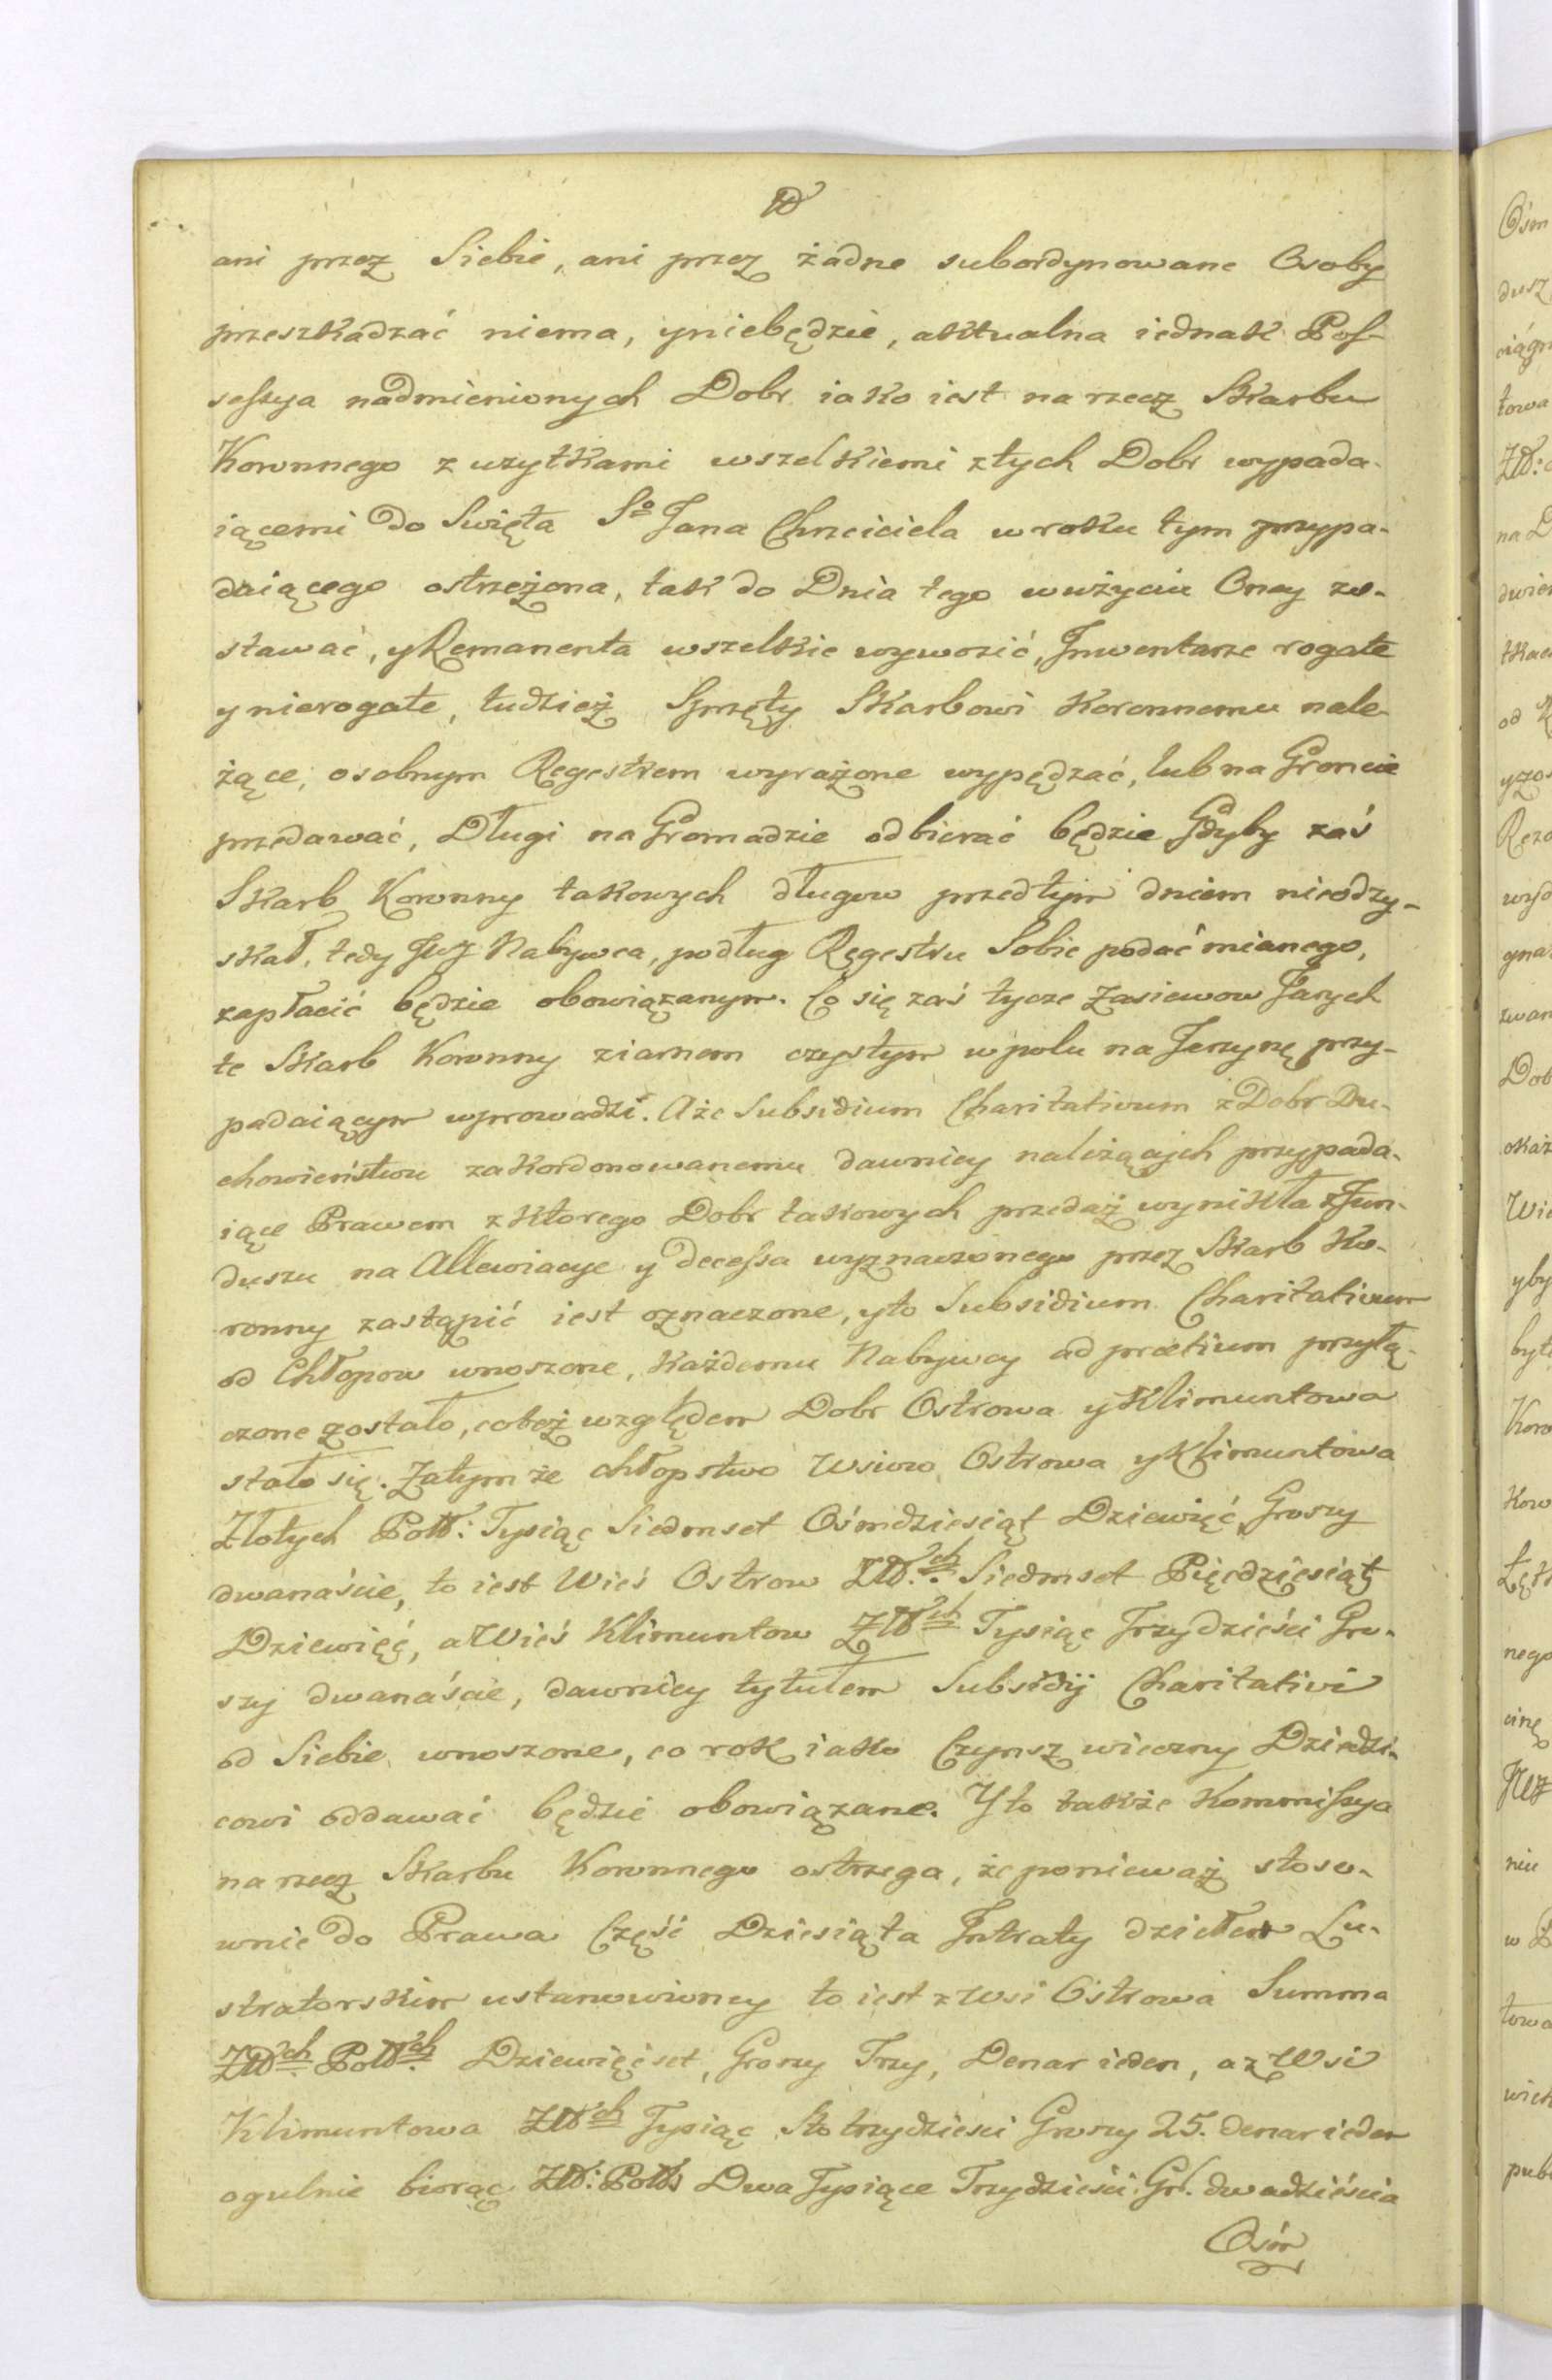 ani przez Siebie, ani przez żadne subordynowane Osoby
przeszkadzać niema, yniebędzie, aktualna iednak Pos-
sessya nadmienionych Dobr iako iest na rzecz Skarbu
Koronnego z uzytkami wszelkiemi z tych Dobr wypada-
iącemi do Swięta S° Jana Chrciciela w roku tym przypa-
daiącego ostrzeżona, tak do Dnia tego w użyciu Oney zo-
stawać, y Remanenta wszelkie wywozić, Inwentarze rogate
y nierogate, tudzież Sprzęty Skarbowi Koronnemu nale-
żące, osobnym Regestrem wyrażone wypędzać, lub na Groncie
przedawać, Długi na Gromadzie odbierać będzie Gdyby zaś
Skarb Koronny takowych długow przed tym dniem nieodzy-
skał, tedy Juz Nabywca, podług Regestru Sobie podać mianego,
zapłacić będzie obowiązanym. Co się zaś tycze Zasiewow Jarych
te Skarb Koronny ziarnem czystym w polu na Jerzynę przy-
padaiącym wprowadzi. Aże Subsidium Charitativum z Dobr Du-
chowieństwu zakordonowanemu dawniey należących przypada-
iące Prawem z ktorego Dobr takowych przedaż wynikła z Fun-
duszu na Allewiacye y decessa wyznaczonego przez Skarb Ko-
ronny zastąpić iest oznaczone, y to Subsidium Charitativum
od Chłopow wnoszone, każdemu Nabywcy ad praetium przyłą-
czone zostało, cobeż względem Dobr Ostrowa y Klimuntowa
stało się. Zatym że chłopstwo Wsiow Ostrowa y Klimuntowa
Złotych Poll: Tysiąc Siedmset Ośmdziesiąt Dziewięć, Groszy
dwanaście, to iest Wieś Ostrow Zll:ch Siedmset Pięcdziesiąt
Dziewięć, a Wieś Klimuntow Zllch Tysiąc Trzydzieści Gro-
szy dwanaście, dawniey tytułem Subsidij Charitativi
od Siebie wnoszone, co rok iako Czynsz wieczny Dziedzi-
cowi oddawać będzie obowiązane. Yto także Kommissya
na rzecz Skarbu Koronnego ostrzega, że ponieważ stoso-
wnie do Prawa Część Dziesiąta Intraty dziełem Lu-
stratorskim ustanowioney to iest z Wsi Ostrowa Summa
Zllch Poll:ch Dziewięćset, Groszy Trzy, Denar ieden, a z Wsi
Klimuntowa Zllch Tysiąc Sto trzydziesci Groszy 25. denar ieden
ogulnie biorąc Zll: Poll: Dwa Tysiące Trzydzieści. Gr. dwadzieścia
Ośm